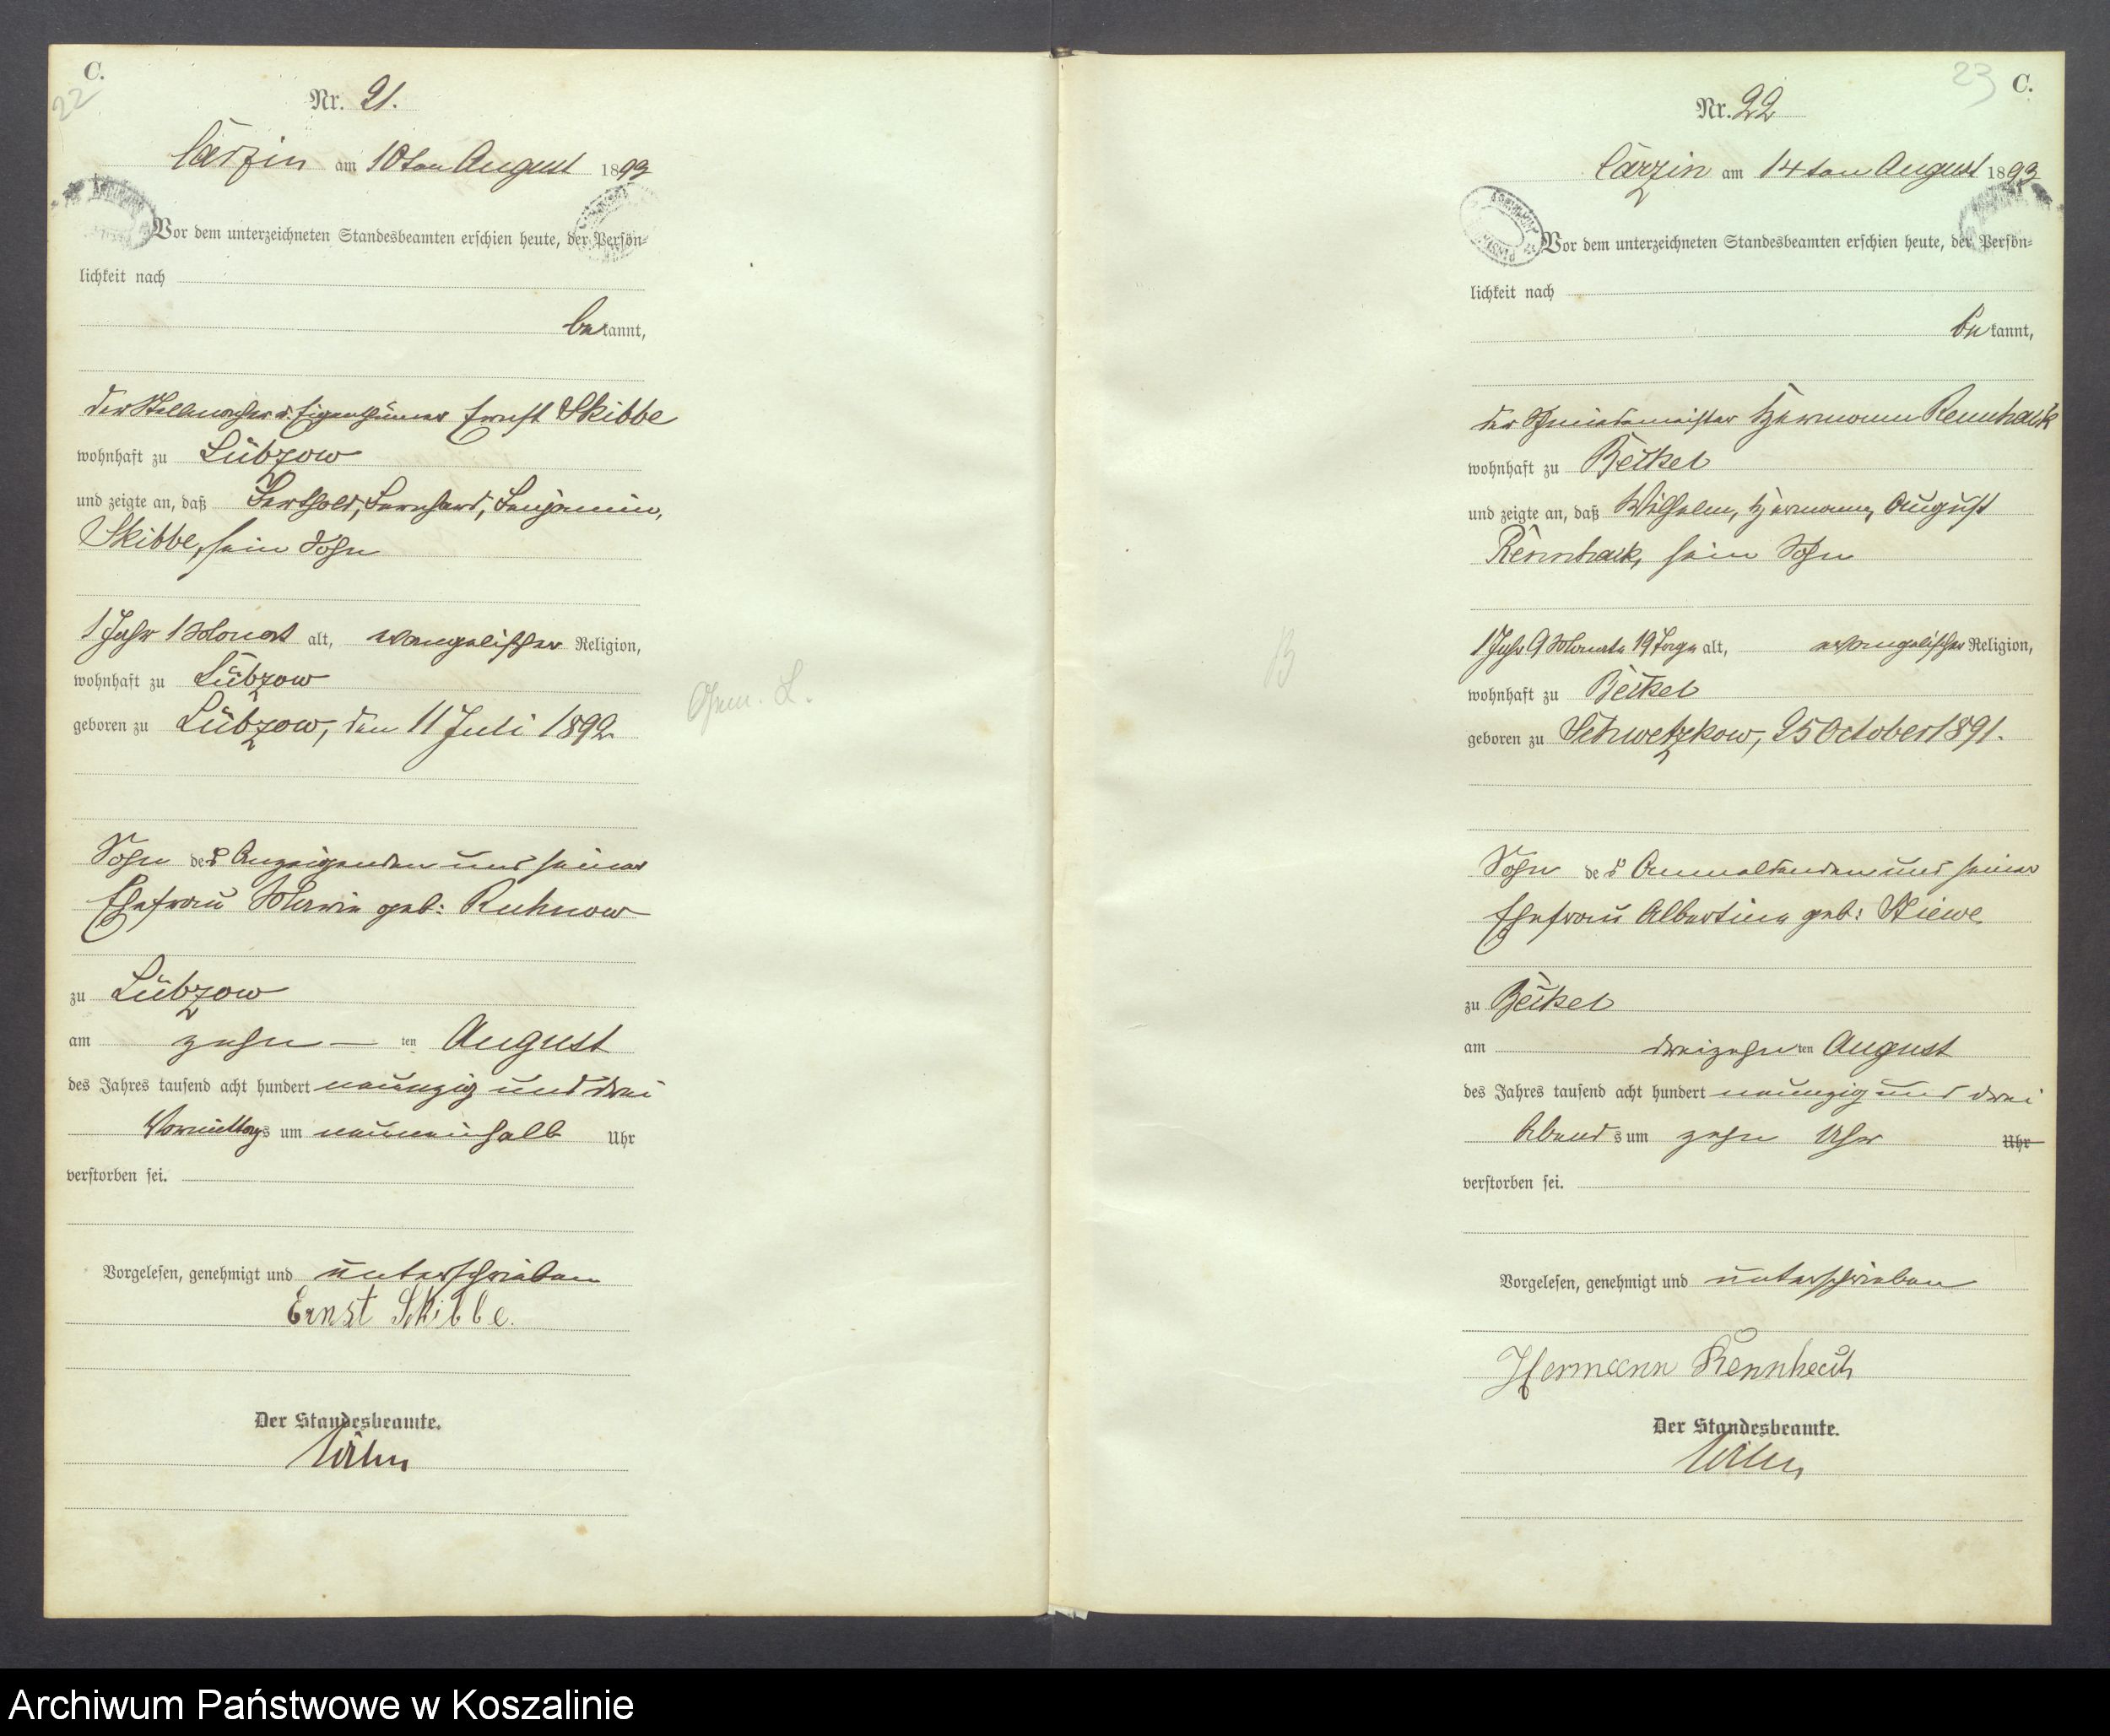 C.
22
Nr. 21.
Carzin am 10ten August 1893
Vor dem unterzeichneten Standesbeamten erschien heute, der Persön-
lichkeit nach
bekannt,
der Stellmacher u. Eigenthümer Ernst Skibbe
wohnhaft zu Lübzow
und zeigte an, daß Berthold, Bernhard, Benjamin,
Skibbe, sein Sohn
1 Jahr 1 Monat alt, evangelischer Religion,
wohnhaft zu Lübzow
geboren zu Lübzow, den 11 Juli 1892
Gem. L.
Sohn des Anzeigenden und seiner
Ehefrau Marie geb: Ruhnow
zu Lübzow
am zehn ten August
des Jahres tausend acht hundert neunzig und drei
Vormittags um neuneinhalb Uhr
verstorben sei.
Vorgelesen, genehmigt und unterschrieben
Ernst Skibbe.
Der Standesbeamte.
23
C.
Nr. 22
Carzin am 14ten August 1893
Vor dem unterzeichneten Standesbeamten erschien heute, der Persön-
lichkeit nach
bekannt,
der Schmiedemeister Hermann Rennhack
wohnhaft zu Beckel
und zeigte an, daß Wilhelm, Hermann, August
Rennhack, sein Sohn
1 Jahr 9 Monate 19 Tage alt, evangelischer Religion,
B
wohnhaft zu Beckel
geboren zu Schwetzkow, 25 October 1891.
Sohn des Anmeldenden und seiner
Ehefrau Albertine geb: Stiewe
zu Beckel
am dreizehn ten August
des Jahres tausend acht hundert neunzig und drei
Abends um zehn Uhr Uhr
verstorben sei.
Vorgelesen, genehmigt und unterschrieben
Hermann Rennhack
Der Standesbeamte.
Archiwum Państwowe w Koszalinie